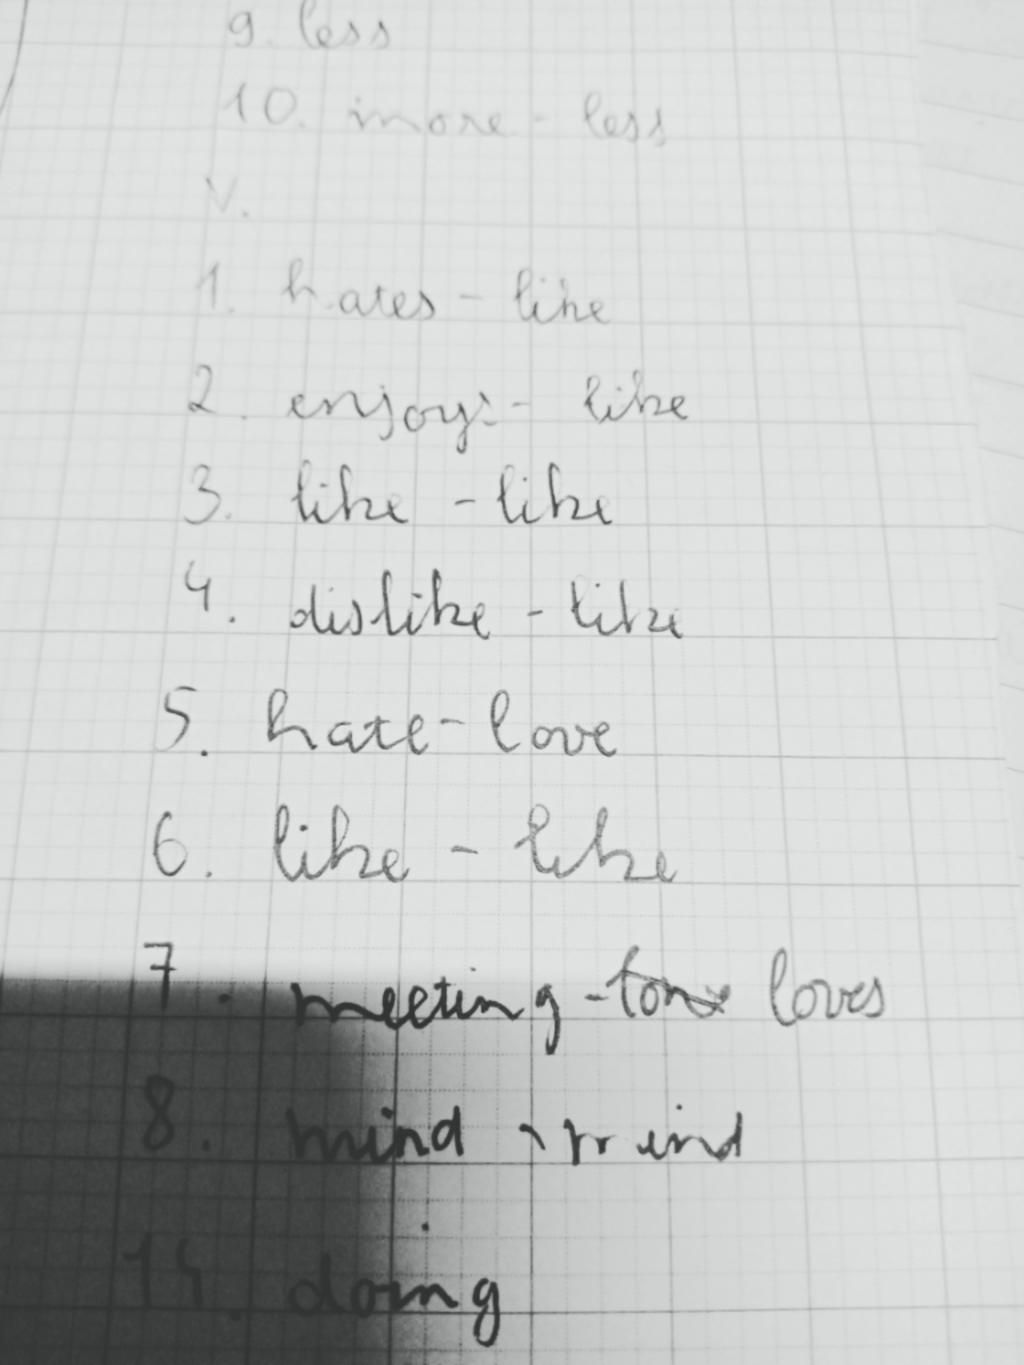 9. less
10. more - less
V.
1. hates - like
2. enjoys - like
3. like - like
4. dislike - like
5. hate - love
6. like - like
7. meeting - loves
8. mind - mind
14. doing